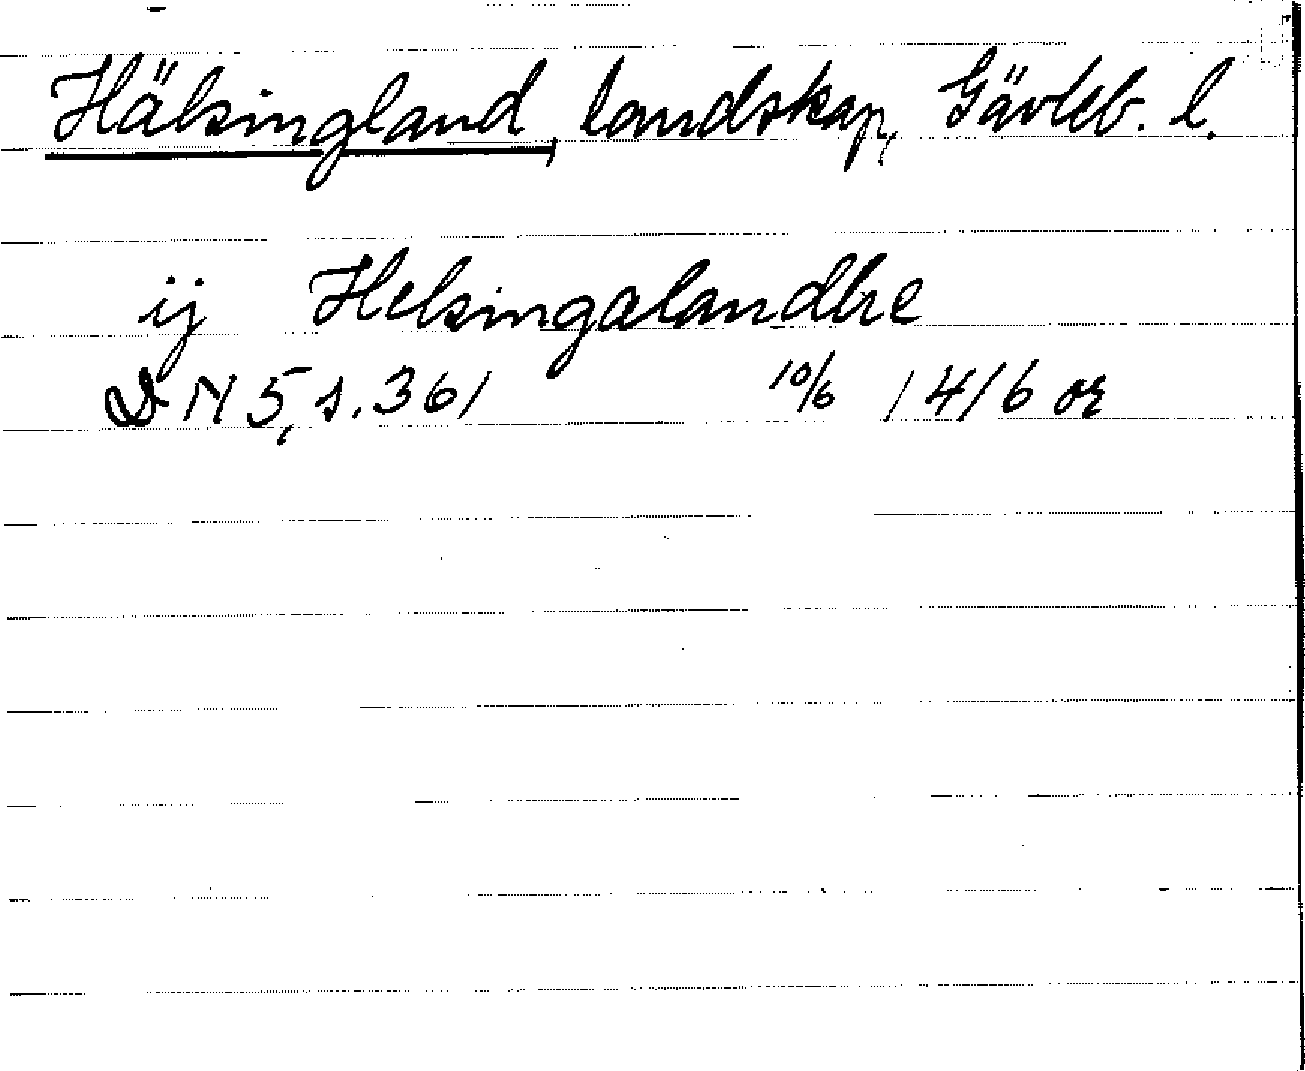 Hälsingland, landskap, Gävleb. l.
ij Helsingalandhe
DN 5, s. 361 10/6 1416 or